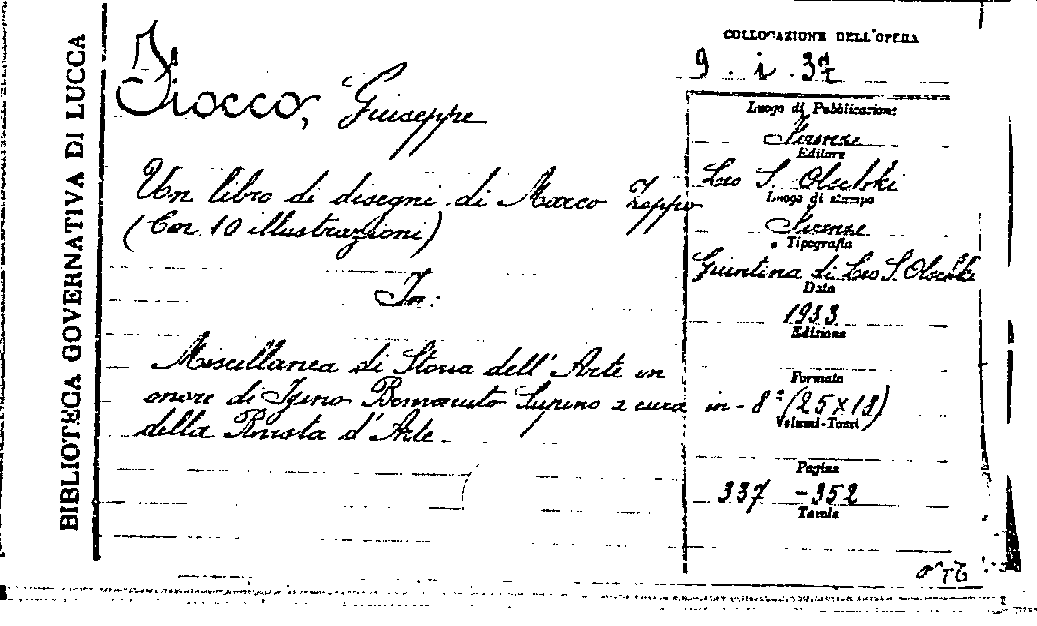 BIBLIOTECA GOVERNATIVA DI LUCCA
COLLOCAZIONE DELL'OPERA
9 . i . 37
Fiocco, Giuseppe
Un libro di disegni di Marco Zoppo
(Con 10 illustrazioni)
In:
Miscellanea di Storia dell'Arte in
onore di Igino Benvenuto Supino a cura
della Rivista d'Arte.
Luogo di Pubblicazione
Firenze
Editore
Leo S. Olschki
Luogo di stampa
Firenze
Tipografia
Giuntina di Leo S. Olschki
Data
1933
Edizione
Formato
in-8° (25x18)
Volumi-Tomi
Pagine
337 - 352
Tavole